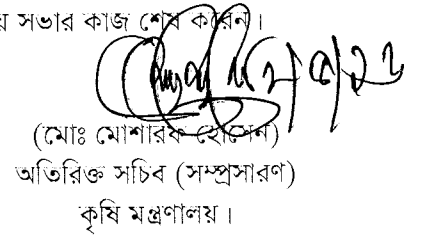 য় সভার কাজ শেষ করেন।
(মোঃ মোশারফ হোসেন)
অতিরিক্ত সচিব (সম্প্রসারণ)
কৃষি মন্ত্রণালয়।